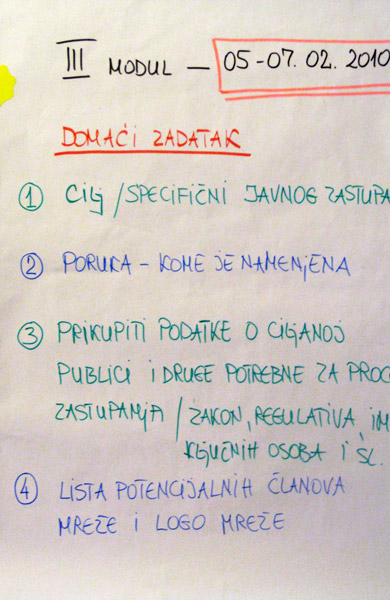 III MODUL — 05-07. 02. 2010
DOMAĆI ZADATAK
① CILJ/SPECIFIČNI JAVNOG ZASTUPA
② PORUKA - KOME JE NAMENJENA
③ PRIKUPITI PODATKE O CILJANOJ
PUBLICI I DRUGE POTREBNE ZA PROC
ZASTUPANJA / ZAKON, REGULATIVA, IM
KLJUČNIH OSOBA I SL.
④ LISTA POTENCIJALNIH ČLANOVA
MREŽE I LOGO MREŽE